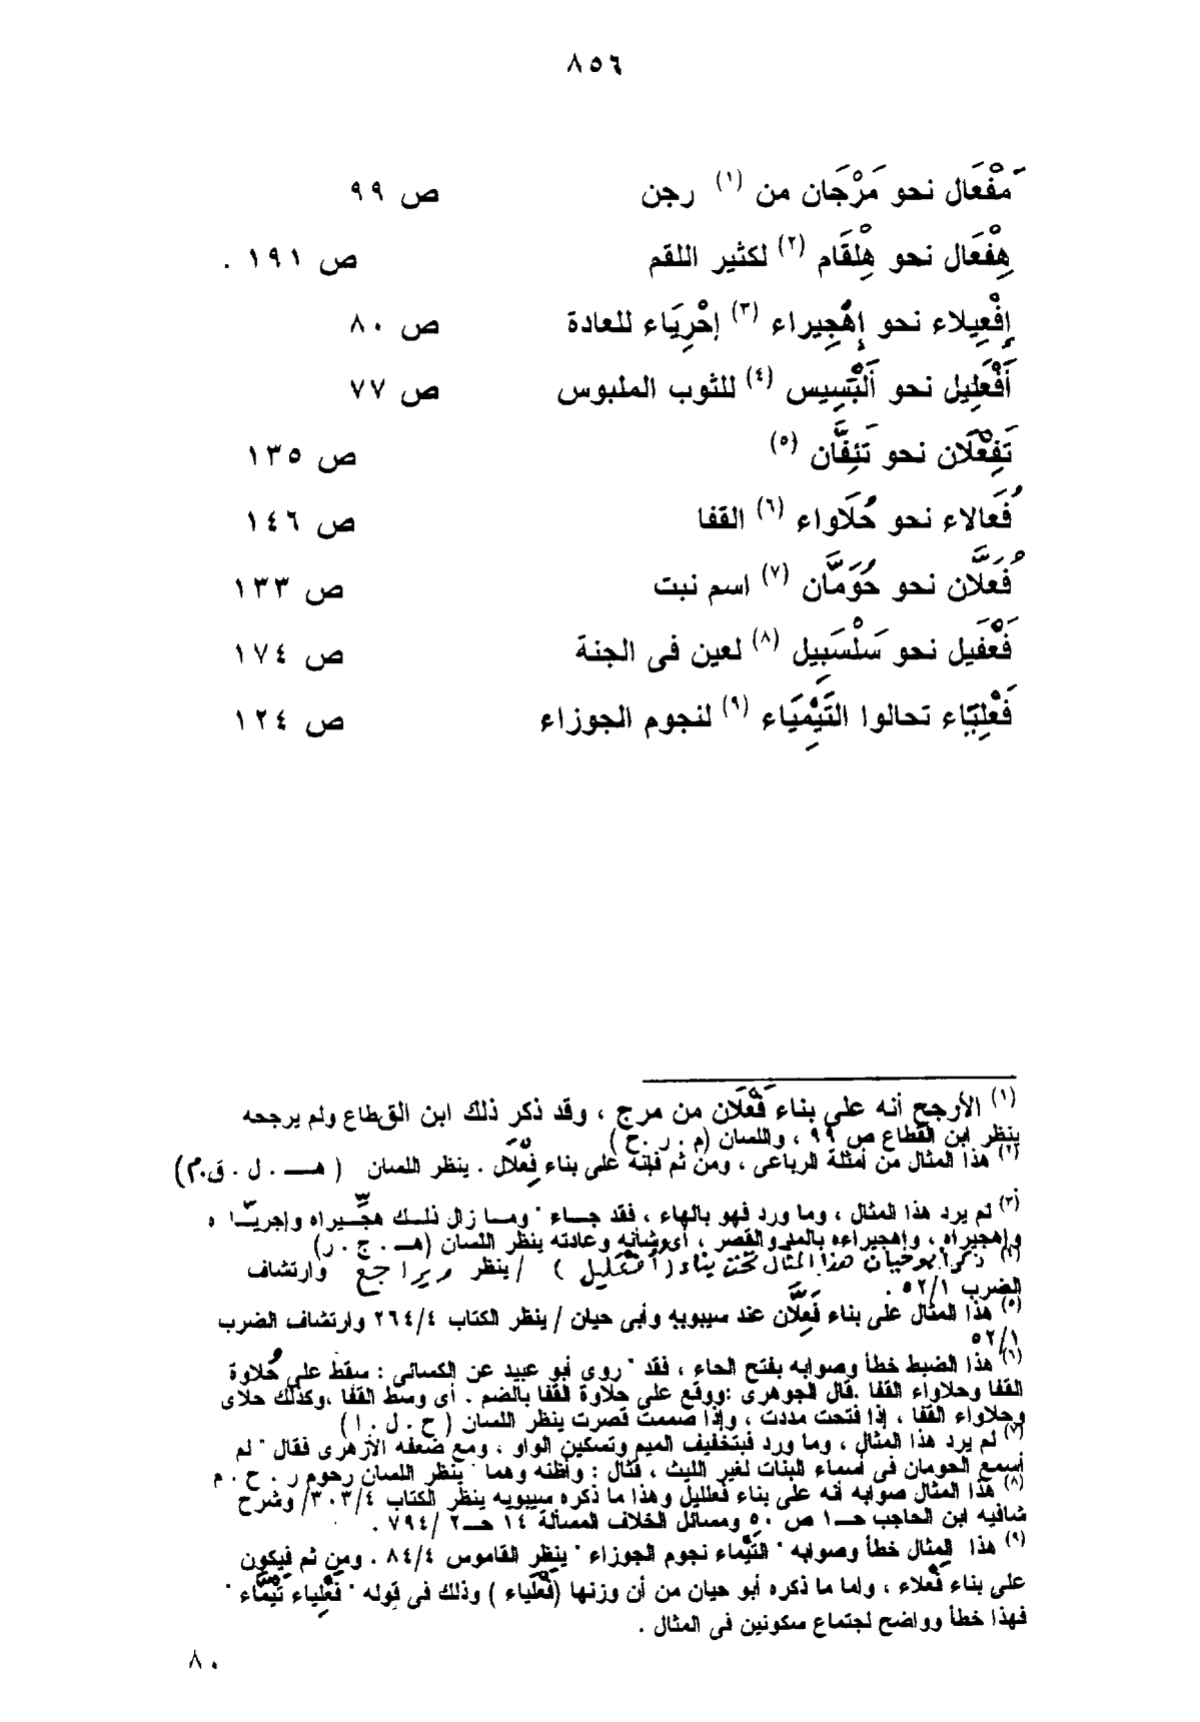 ٨٥٦
مَفْعَال نحو مَرْجَان من (١) رجن ص ٩٩
هِفْعَال نحو هِلْقَام (٢) لكثير اللقم ص ١٩١ .
إِفْعِيلاء نحو إِهْجِيراء (٣) إِحْرِيَاء للعادة ص ٨٠
أَفْعَلِيل نحو أَلْبَسِيس (٤) للثوب الملبوس ص ٧٧
تَفِعْلَان نحو تَئِفَّان (٥) ص ١٣٥
فُعَالاء نحو حُلَاواء (٦) القفا ص ١٤٦
فُعَلَّان نحو حُوَمَّان (٧) اسم نبت ص ١٣٣
فَعْفَيل نحو سَلْسَبِيل (٨) لعين فى الجنة ص ١٧٤
فَعْلِيَاء تحالوا التَيْمِيَاء (٩) لنجوم الجوزاء ص ١٢٤
(١) الأرجح أنه على بناء فَعْلَان من مرج ، وقد ذكر ذلك ابن القطاع ولم يرجحه
ينظر ابن القطاع ص ٩٩ ، واللسان (م . ر . ح )
(٢) هذا المثال من أمثلة الرباعى ، ومن ثم فإنه على بناء فِعْلَال . ينظر اللسان ( هـ . ل . ق . م )
(٣) لم يرد هذا المثال ، وما ورد فهو بالهاء ، فقد جاء " وما زال ذلك هجِّيراه وإجريَّاه
وإهجيراه ، وإهجيراءه بالمد والقصر ، أى شأنه وعادته ينظر اللسان (هـ . ج . ر)
(٤) ذكر أبو حيان هذا المثال تحت بناء ( أفعليل ) / ينظر ويراجع وارتشاف
الضرب ٥٢/١ .
(٥) هذا المثال على بناء فَعِلَّان عند سيبويه وأبى حيان / ينظر الكتاب ٢٦٤/٤ وارتشاف الضرب
٥٢/١
(٦) هذا الضبط خطأ وصوابه بفتح الحاء ، فقد " روى أبو عبيد عن الكسائى : سقط على حُلاوة
القفا وحلاواء القفا . قال الجوهرى : ووقع على حلاوة القفا بالضم . أى وسط القفا ، وكذلك حلاى
وحلاواء القفا ، إذا فتحت مددت ، وإذا ضممت قصرت ينظر اللسان ( ح . ل . ا )
(٧) لم يرد هذا المثال ، وما ورد فبتخفيف الميم وتسكين الواو ، ومع ضعفه الأزهرى فقال " لم
أسمع الحومان فى أسماء النبات لغير الليث ، فثال : وأظنه وهما " ينظر اللسان رحوم ر . ح . م
(٨) هذا المثال صوابه أنه على بناء فعلليل وهذا ما ذكره سيبويه ينظر الكتاب ٣٠٣/٤/ وشرح
شافيه ابن الحاجب حـ١ ص ٥٠ ومسائل الخلاف المسألة ١٤ حـ٢ /٧٩٤ .
(٩) هذا المثال خطأ وصوابه " التَيْماء نجوم الجوزاء " ينظر القاموس ٨٤/٤ . ومن ثم فيكون
على بناء فَعْلاء ، واما ما ذكره أبو حيان من أن وزنها (فَعْلَياء ) وذلك فى قوله " فَعْلِياء تَيْمَّاء "
فهذا خطأ وواضح لجتماع سكونين فى المثال .
٨٠